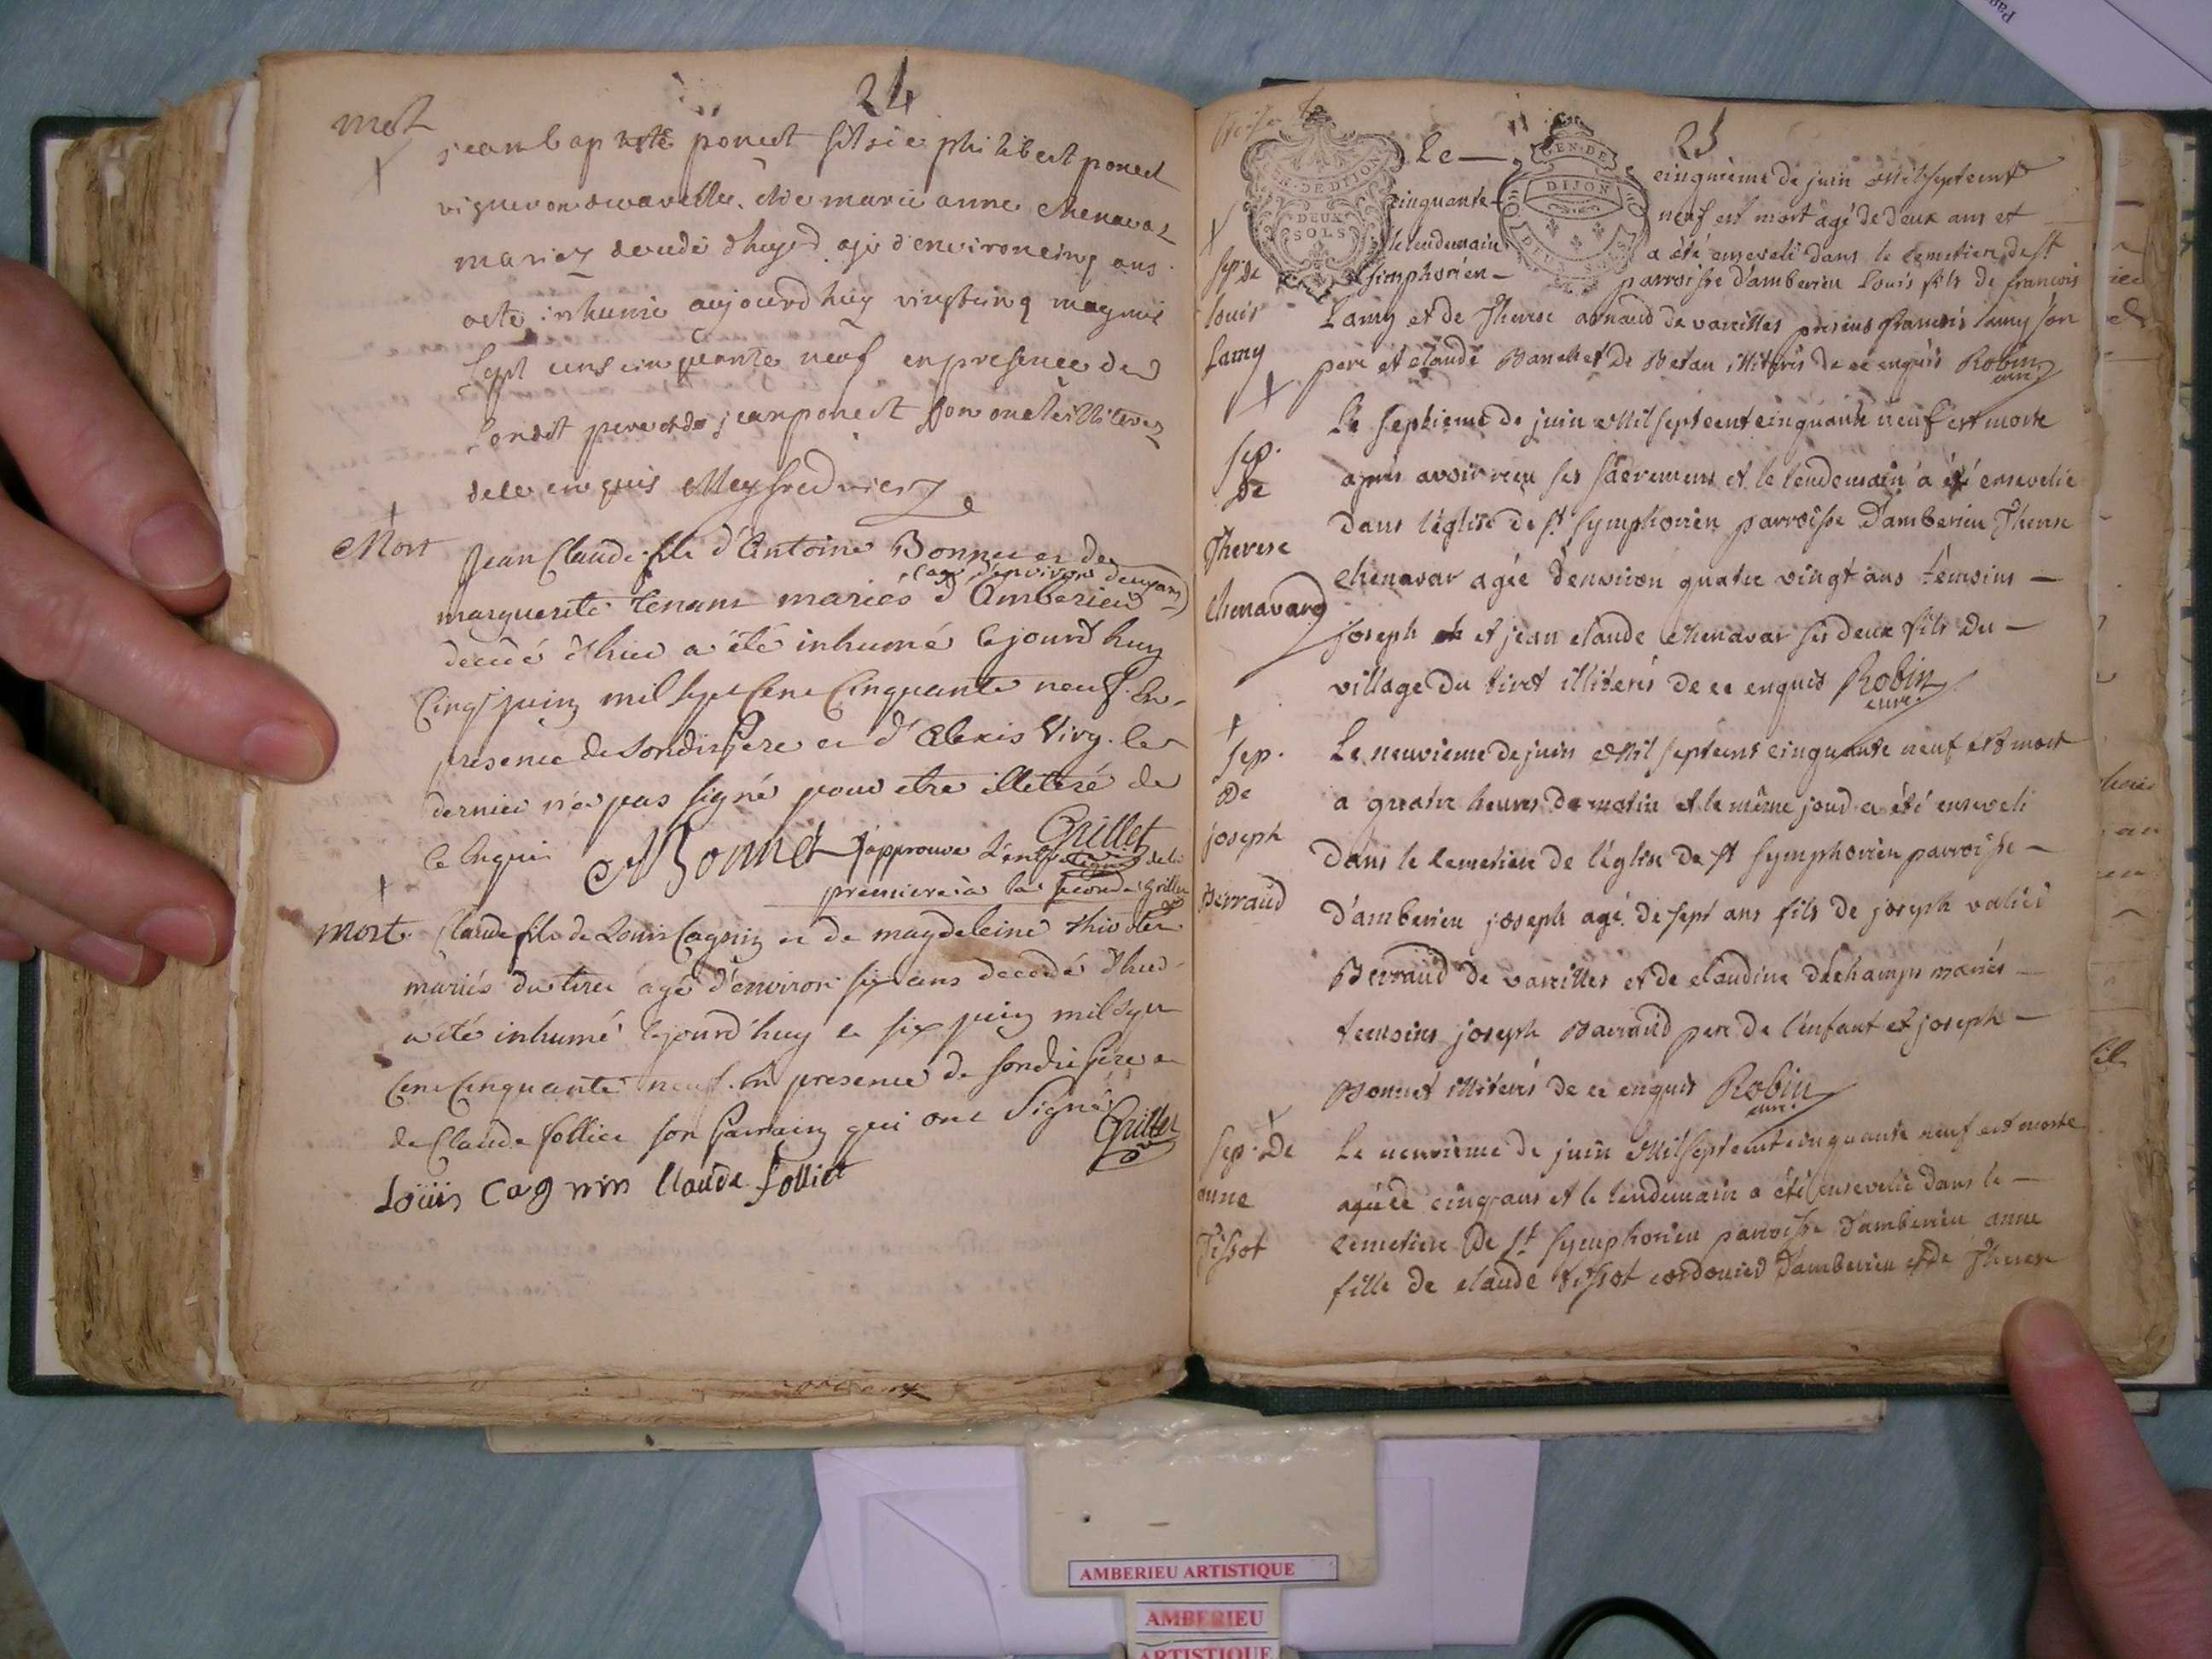 24
mort
jean baptiste ponect fils de philibert ponect
vigneron de vareilles et de marie anne chenavaz
mariez decedé d'huyer agé d'environ cinq ans
a eté inhumé aujourd huy vingt cinq may mil
sept cens cinquante neuf en presence de
son dit pere et de jean ponect son oncle illiterez
de ce enquis Meyssredriez
Mort
Jean Claude fils d'Antoine Bonnet et de
(agé d'environ deux ans)
marguerite tenant mariés d'Amberieu
decedé d'hier a été inhumé ce jourd'huy
Cinq juin mil sept Cent Cinquante neuf. En
presence de sondit pere et d'Alexis Viry. le
dernier n'a pas signé pour etre illetéré de
ce enquis A Bonnet j'approuve l'entreligne de la
Grillet
premiere à la seconde Grillet
mort
Claude fils de Louis Cagnin et de magdeleine thivolet
mariés du tiret agé d'environ six ans decedé d'hier
a été inhumé ce jourd'huy le six juin mil sept
Cent Cinquante neuf. en presence de sondit pere et
de Claude folliet son parrain qui ont signé
Grillet
Loüis Cagnin Claude folliet
25
GEN. DE DIJON
DEUX SOLS
GEN. DE
DIJON
DEUX SOLS
Le — cinquième de juin Mil sept cent
cinquante- neuf est mort agé de deux ans et
le lendemain a été enseveli dans le cemetiere de st
simphorien- parroisse d'amberieu Louis fils de francois
sep. de
louis
Lamy
Lamy et de Therese arnaud de vareilles presens francois lamy son
pere et claude Banchet De Betan illiterés de ce enquis Robin
curé
sep.
de
Therese
Chenavard
Le septieme de juin Mil sept cent cinquante neuf est morte
après avoir reçu ses sacremens et le lendemain a été ensevelie
Dans l'église de st. symphorien parroisse D'amberieu Therese
chenavar agée d'environ quatre vingt ans témoins —
joseph et jean claude chenavar ses deux fils Du —
village Du tiret illiterés de ce enquis Robin
curé
sep.
De
joseph
Berraud
Le neuvieme de juin Mil sept cent cinquante neuf est mort
a quatre heures de matin et le même jour a été enseveli
dans le cemetiere de l'église de st symphorien parroisse —
D'amberieu joseph agé de sept ans fils de joseph
Berraud de vareilles et de claudine dechamps mariés —
temoins joseph Barraud pere de l'enfant et joseph —
Bonnet illiterés de ce enquis Robin
curé
sep. De
anne
Tissot
Le neuvieme de juin Mil sept cent cinquante neuf est morte
agée de cinq ans et le lendemain a été ensevelie dans le —
cemetiere De st symphorien parroisse d'amberieu anne
fille de claude tissot cordonier D'amberieu et de Therese
AMBERIEU ARTISTIQUE
AMBERIEU
ARTISTIQUE